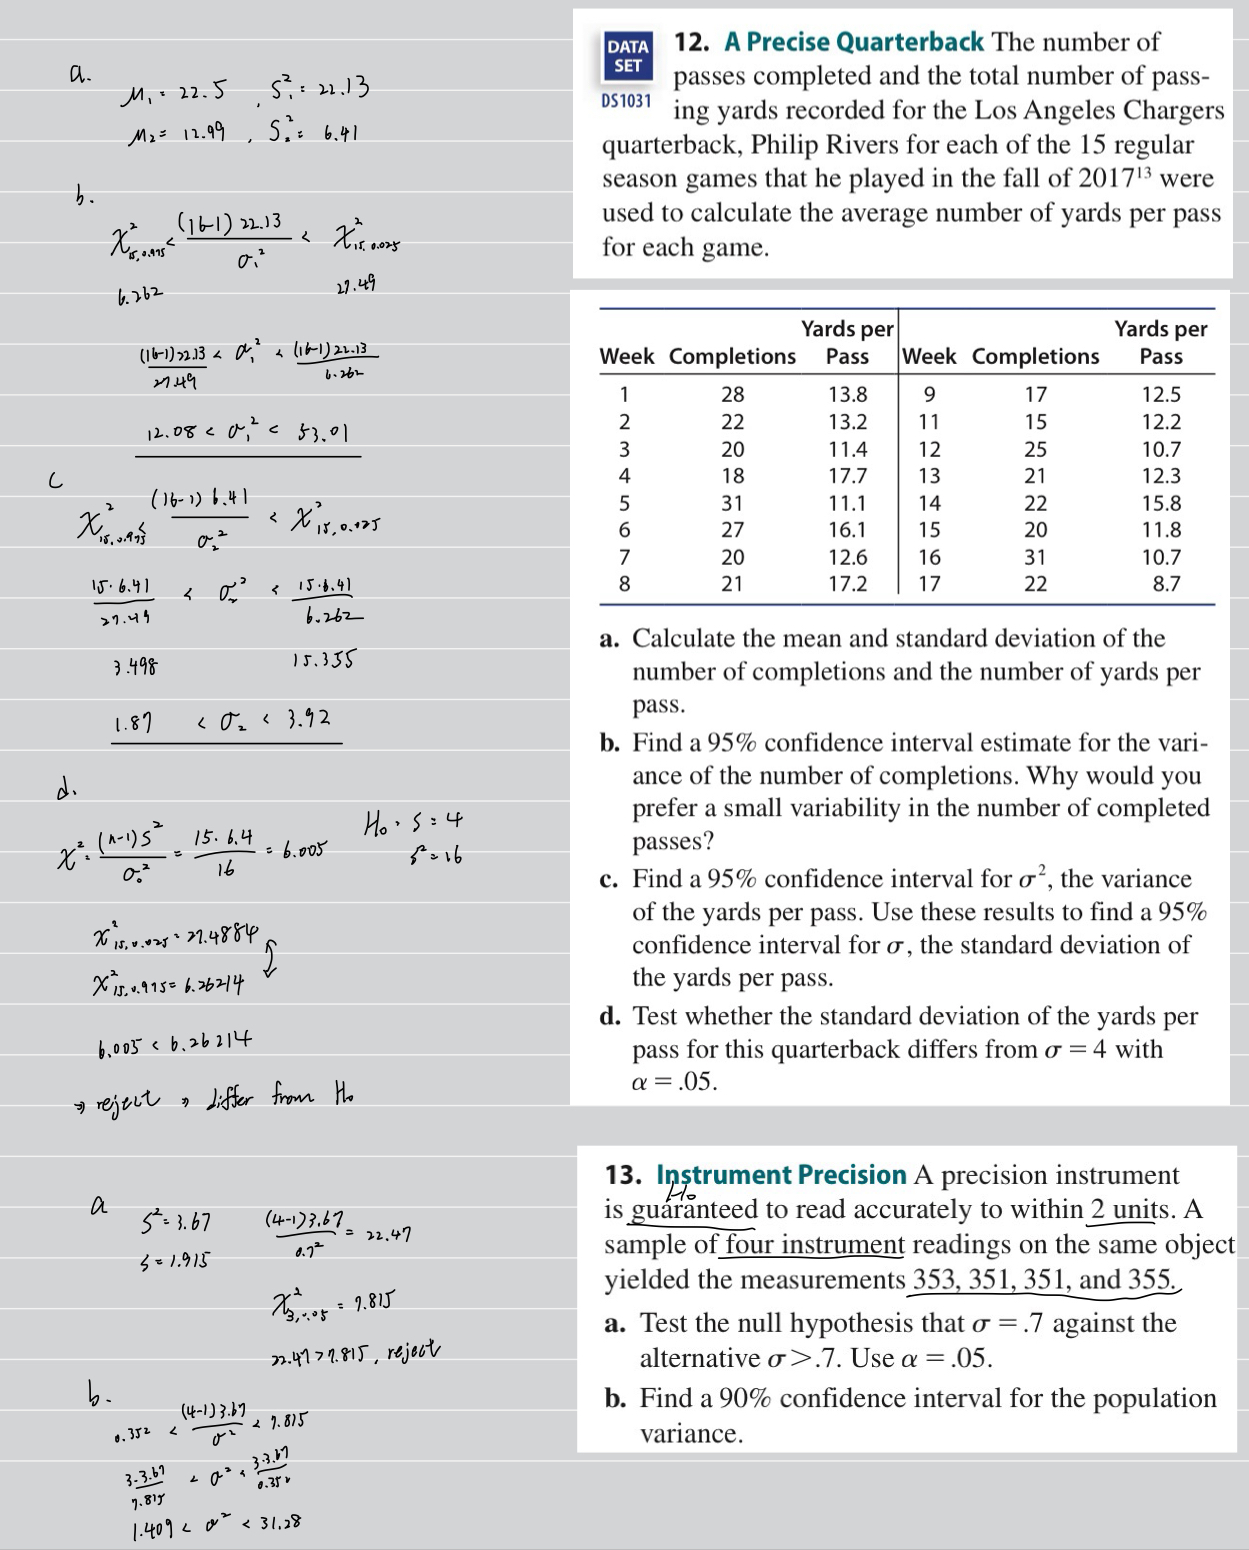 a.
M₁ = 22.5 , S₁² = 22.13
M₂ = 12.99 , S₂² = 6.41
b.
χ²₁₅,₀.₉₇₅ < (16-1) 22.13 / σ₁² < χ²₁₅, ₀.₀₂₅
6.262 27.49
(16-1) 22.13 / 27.49 < σ₁² < (16-1) 22.13 / 6.262
12.08 < σ₁² < 53.01
C
χ²₁₅,₀.₉₇₅ < (16-1) 6.41 / σ₂² < χ²₁₅, ₀.₀₂₅
15·6.41 / 27.49 < σ₂² < 15·6.41 / 6.262
3.498 15.355
1.87 < σ₂ < 3.92
d.
χ² = (n-1)S² / σ₀² = 15·6.4 / 16 = 6.005
H₀ : S = 4
S² = 16
χ²₁₅, ₀.₀₂₅ = 27.4884
χ²₁₅, ₀.₉₇₅ = 6.26214
6.005 < 6.26214
⇒ reject , differ from H₀
DATA
SET
DS1031
12. A Precise Quarterback The number of
passes completed and the total number of pass-
ing yards recorded for the Los Angeles Chargers
quarterback, Philip Rivers for each of the 15 regular
season games that he played in the fall of 2017¹³ were
used to calculate the average number of yards per pass
for each game.
Yards per Yards per
Week Completions Pass Week Completions Pass
1 28 13.8 9 17 12.5
2 22 13.2 11 15 12.2
3 20 11.4 12 25 10.7
4 18 17.7 13 21 12.3
5 31 11.1 14 22 15.8
6 27 16.1 15 20 11.8
7 20 12.6 16 31 10.7
8 21 17.2 17 22 8.7
a. Calculate the mean and standard deviation of the
number of completions and the number of yards per
pass.
b. Find a 95% confidence interval estimate for the vari-
ance of the number of completions. Why would you
prefer a small variability in the number of completed
passes?
c. Find a 95% confidence interval for σ², the variance
of the yards per pass. Use these results to find a 95%
confidence interval for σ, the standard deviation of
the yards per pass.
d. Test whether the standard deviation of the yards per
pass for this quarterback differs from σ = 4 with
α = .05.
a
S² = 3.67 (4-1)3.67 / 0.7² = 22.47
S = 1.915
χ²₃,₀.₀₅ = 7.815
22.47 > 7.815 , reject
b.
0.352 < (4-1)3.67 / σ² < 7.815
3·3.67 / 7.815 < σ² < 3·3.67 / 0.352
1.409 < σ² < 31.28
13. Instrument Precision A precision instrument
H₀
is guaranteed to read accurately to within 2 units. A
sample of four instrument readings on the same object
yielded the measurements 353, 351, 351, and 355.
a. Test the null hypothesis that σ = .7 against the
alternative σ > .7. Use α = .05.
b. Find a 90% confidence interval for the population
variance.